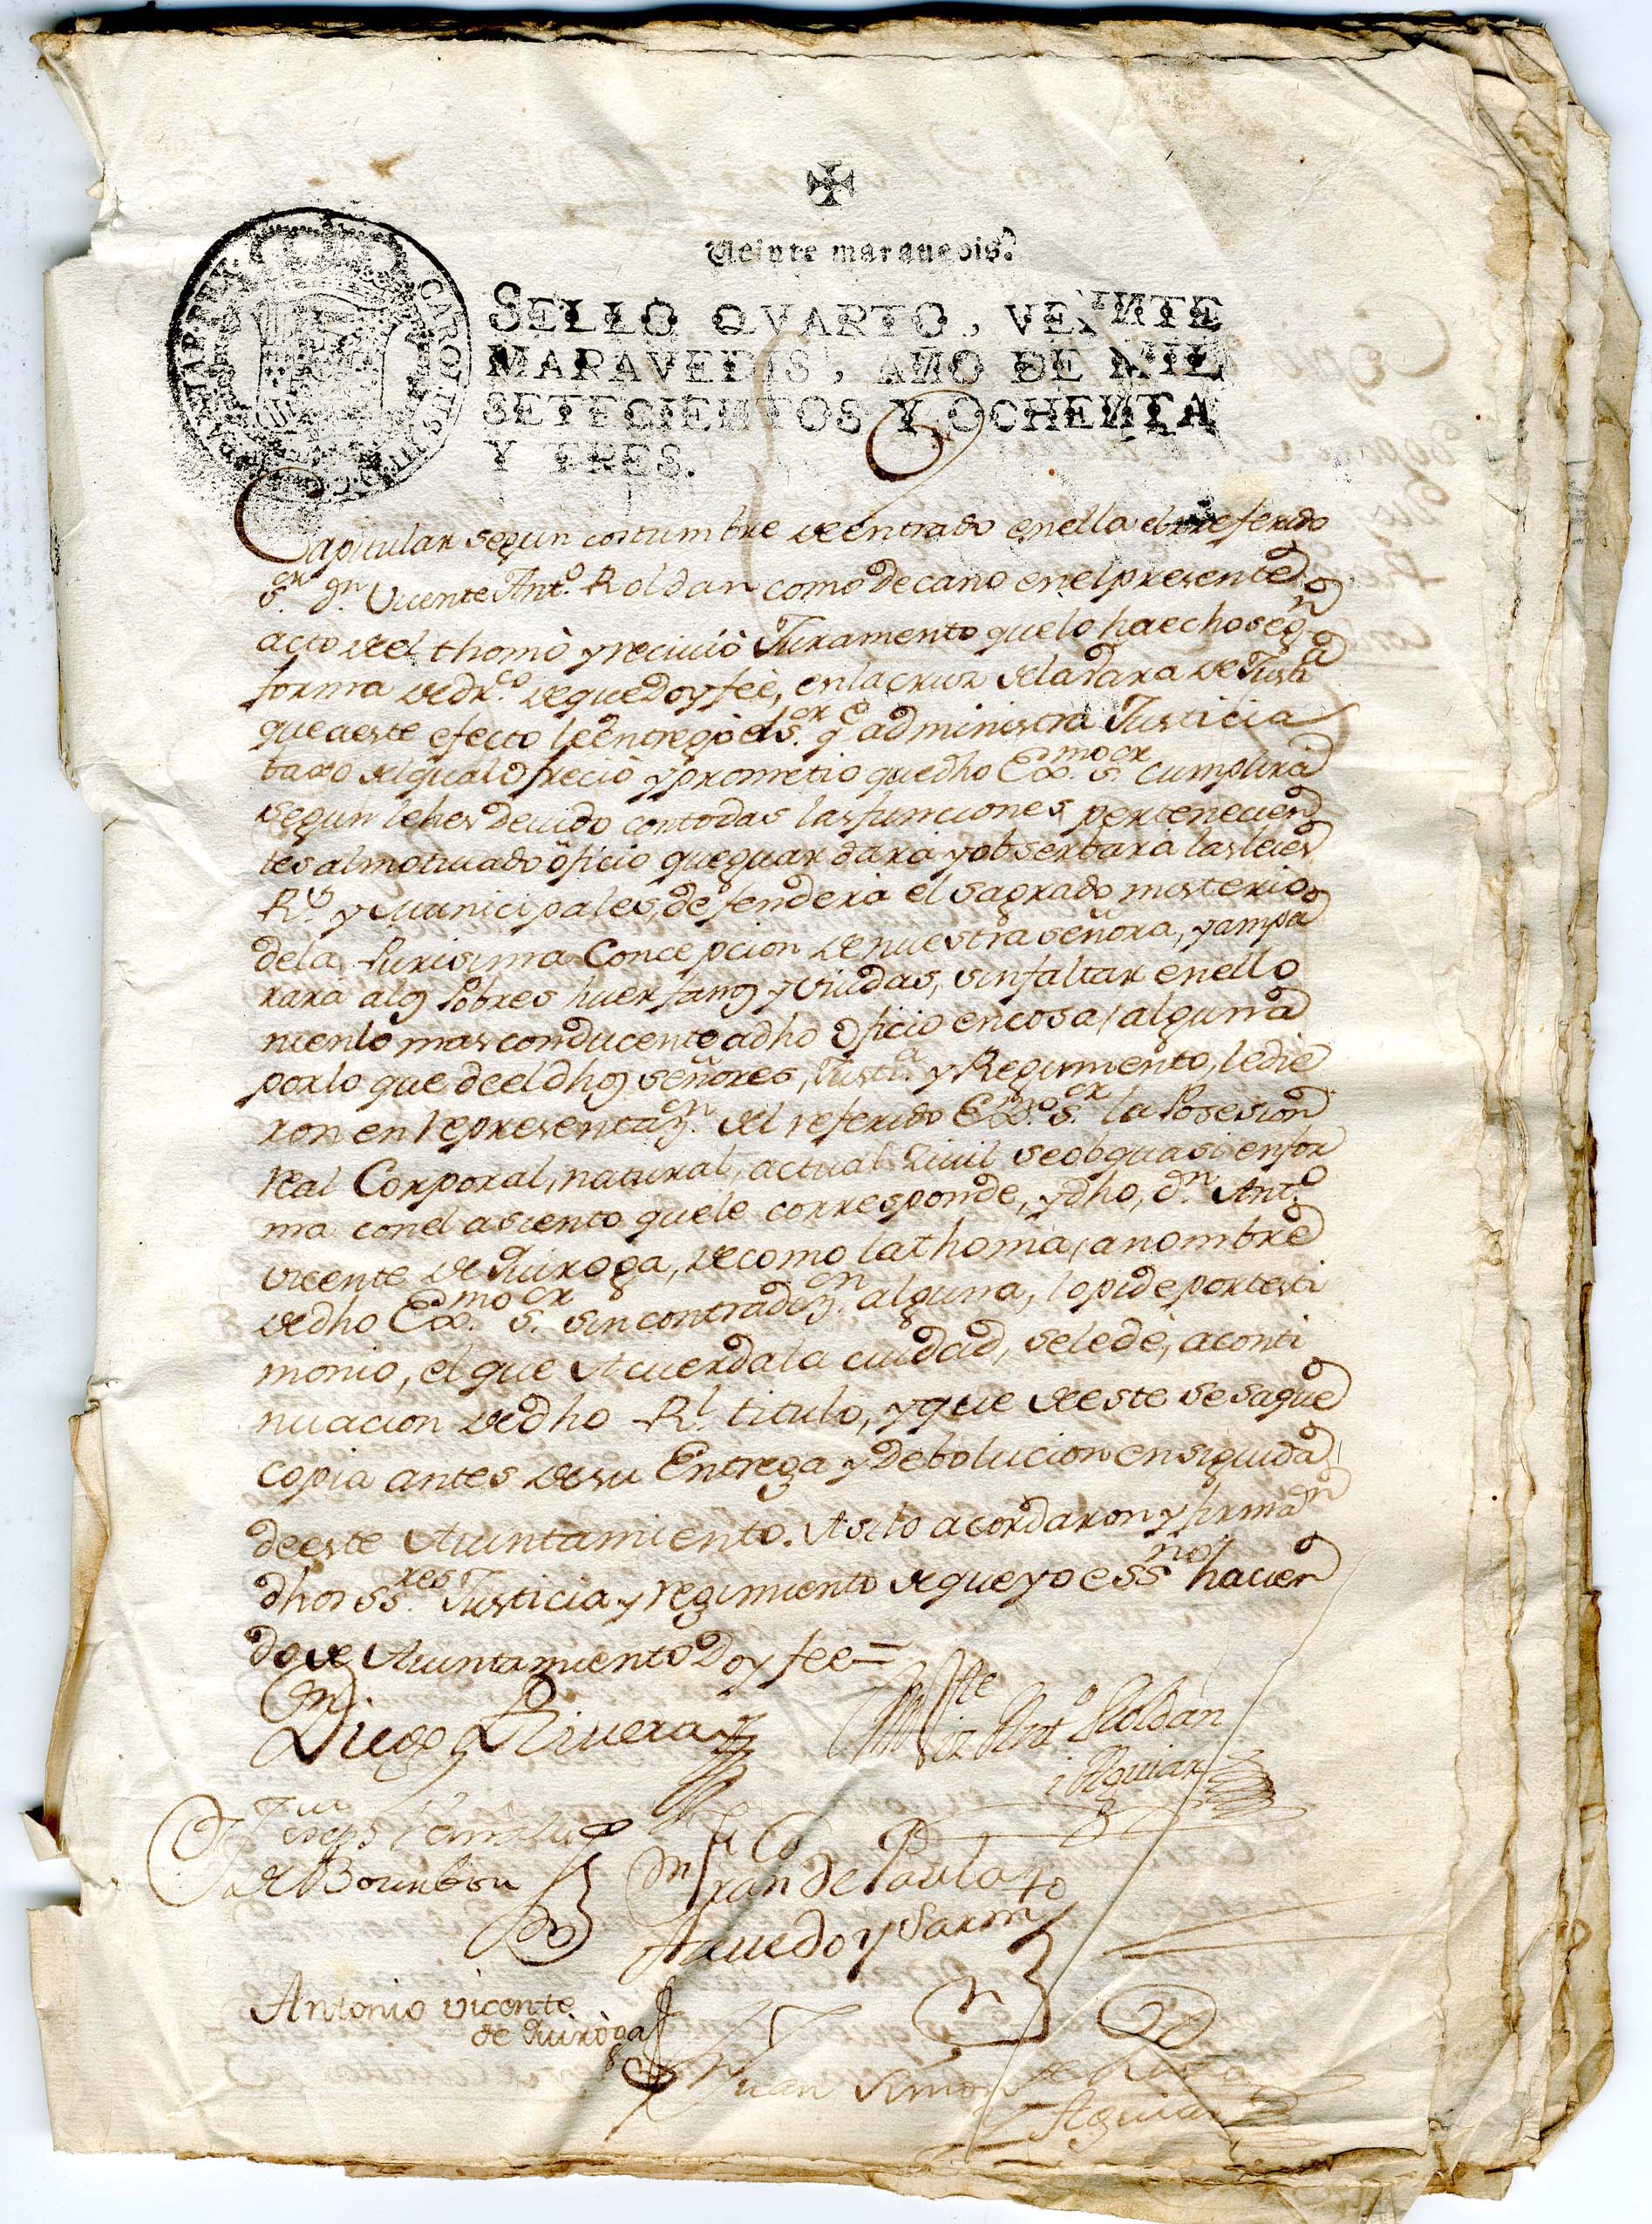 Veinte maravedis.
SELLO QVARTO, VEINTE
MARAVEDIS, AÑO DE MIL
SETECIENTOS Y OCHENTA
Y TRES.
Capitular segun costumbre de entrado enella el referido
s.or d.n Vicente Ant.o Roldan como decano enel presente
acto deel thomò y reciuiò Juramento quelo haechoseg.n
forma dedr.o dequedoyfeè, enlacruz delabara deJust.a
queaeste efecto leentregò els.or q.e administra Justicia
baxo delqual ofreciò yprometio quedho Ex.mo s.or cumplira
segun lehes deuido contodas lasfunciones pertenecien
tes almotiuado oficio queguardara yobserbara lasleies
R.s y Municipales, defendera el sagrado misterio
dela Purisima Concepcion denuestra señora, yampa
rara alos Pobres huerfanos y viudas, sinfaltar enello
nienlo masconducente adho oficio encosa alguna
porlo que deel dhos señores, Just.a y Regimiento, ledie
ron enrepresentaz.n del referido Ex.mo s.or la Posesion
Real Corporal, natural, actual Ziuil seobquasi enfor
ma conel asciento quele corresponde, ydho, d.n Ant.o
vicente de Quiroga, decomo lathoma, anombre
dedho Ex.mo s.or sincontradiz.n alguna, lopide portesti
monio, elque Acuerdala ciudad, selede, aconti
nuacion dedho R.l titulo, yque deeste sesaque
copia antes desu Entrega y Debolucion ensiguida
deeste Aiuntamiento. Asilo acordaron y firma.n
dhos ss.res Justicia y regimiento dequeyo ess.no hacien
dode Aiuntamiento Doyfee=
D.n Diego Rivera
Vic.te Ant.o Roldan
i Aguiar
Joseph
de Bourbon
D.n Fran.co de Paula
Azeuedo y Sarm.to
Antonio vicente
de Quiròga
Juan Simon de
y Aguiar